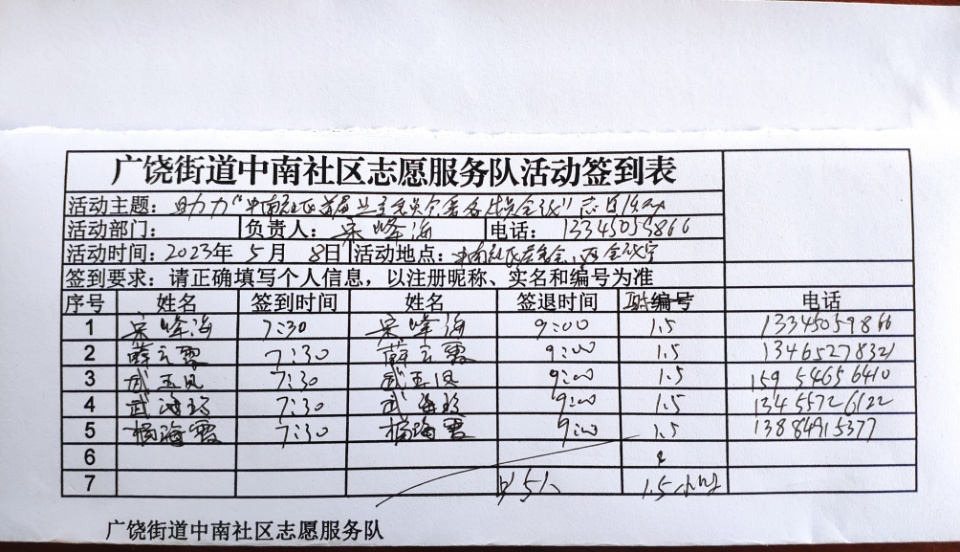 广饶街道中南社区志愿服务队活动签到表
活动主题：助力“中南社区
活动部门： 负责人：宋峰海 电话：13345059866
活动时间：2023年 5月 8日 活动地点：中南社区居委会
签到要求：请正确填写个人信息，以注册昵称、实名和编号为准
序号 姓名 签到时间 姓名 签退时间 编号 电话
1 宋峰海 7:30 宋峰海 9:00 1.5 13345059866
2 薛云霞 7:30 薛云霞 9:00 1.5 13465278321
3 武玉凤 7:30 武玉凤 9:00 1.5 15954656410
4 武海珍 7:30 武海珍 9:00 1.5 13455726122
5 杨海霞 7:30 杨海霞 9:00 1.5 13884915377
6
7 5人 1.5小时
广饶街道中南社区志愿服务队